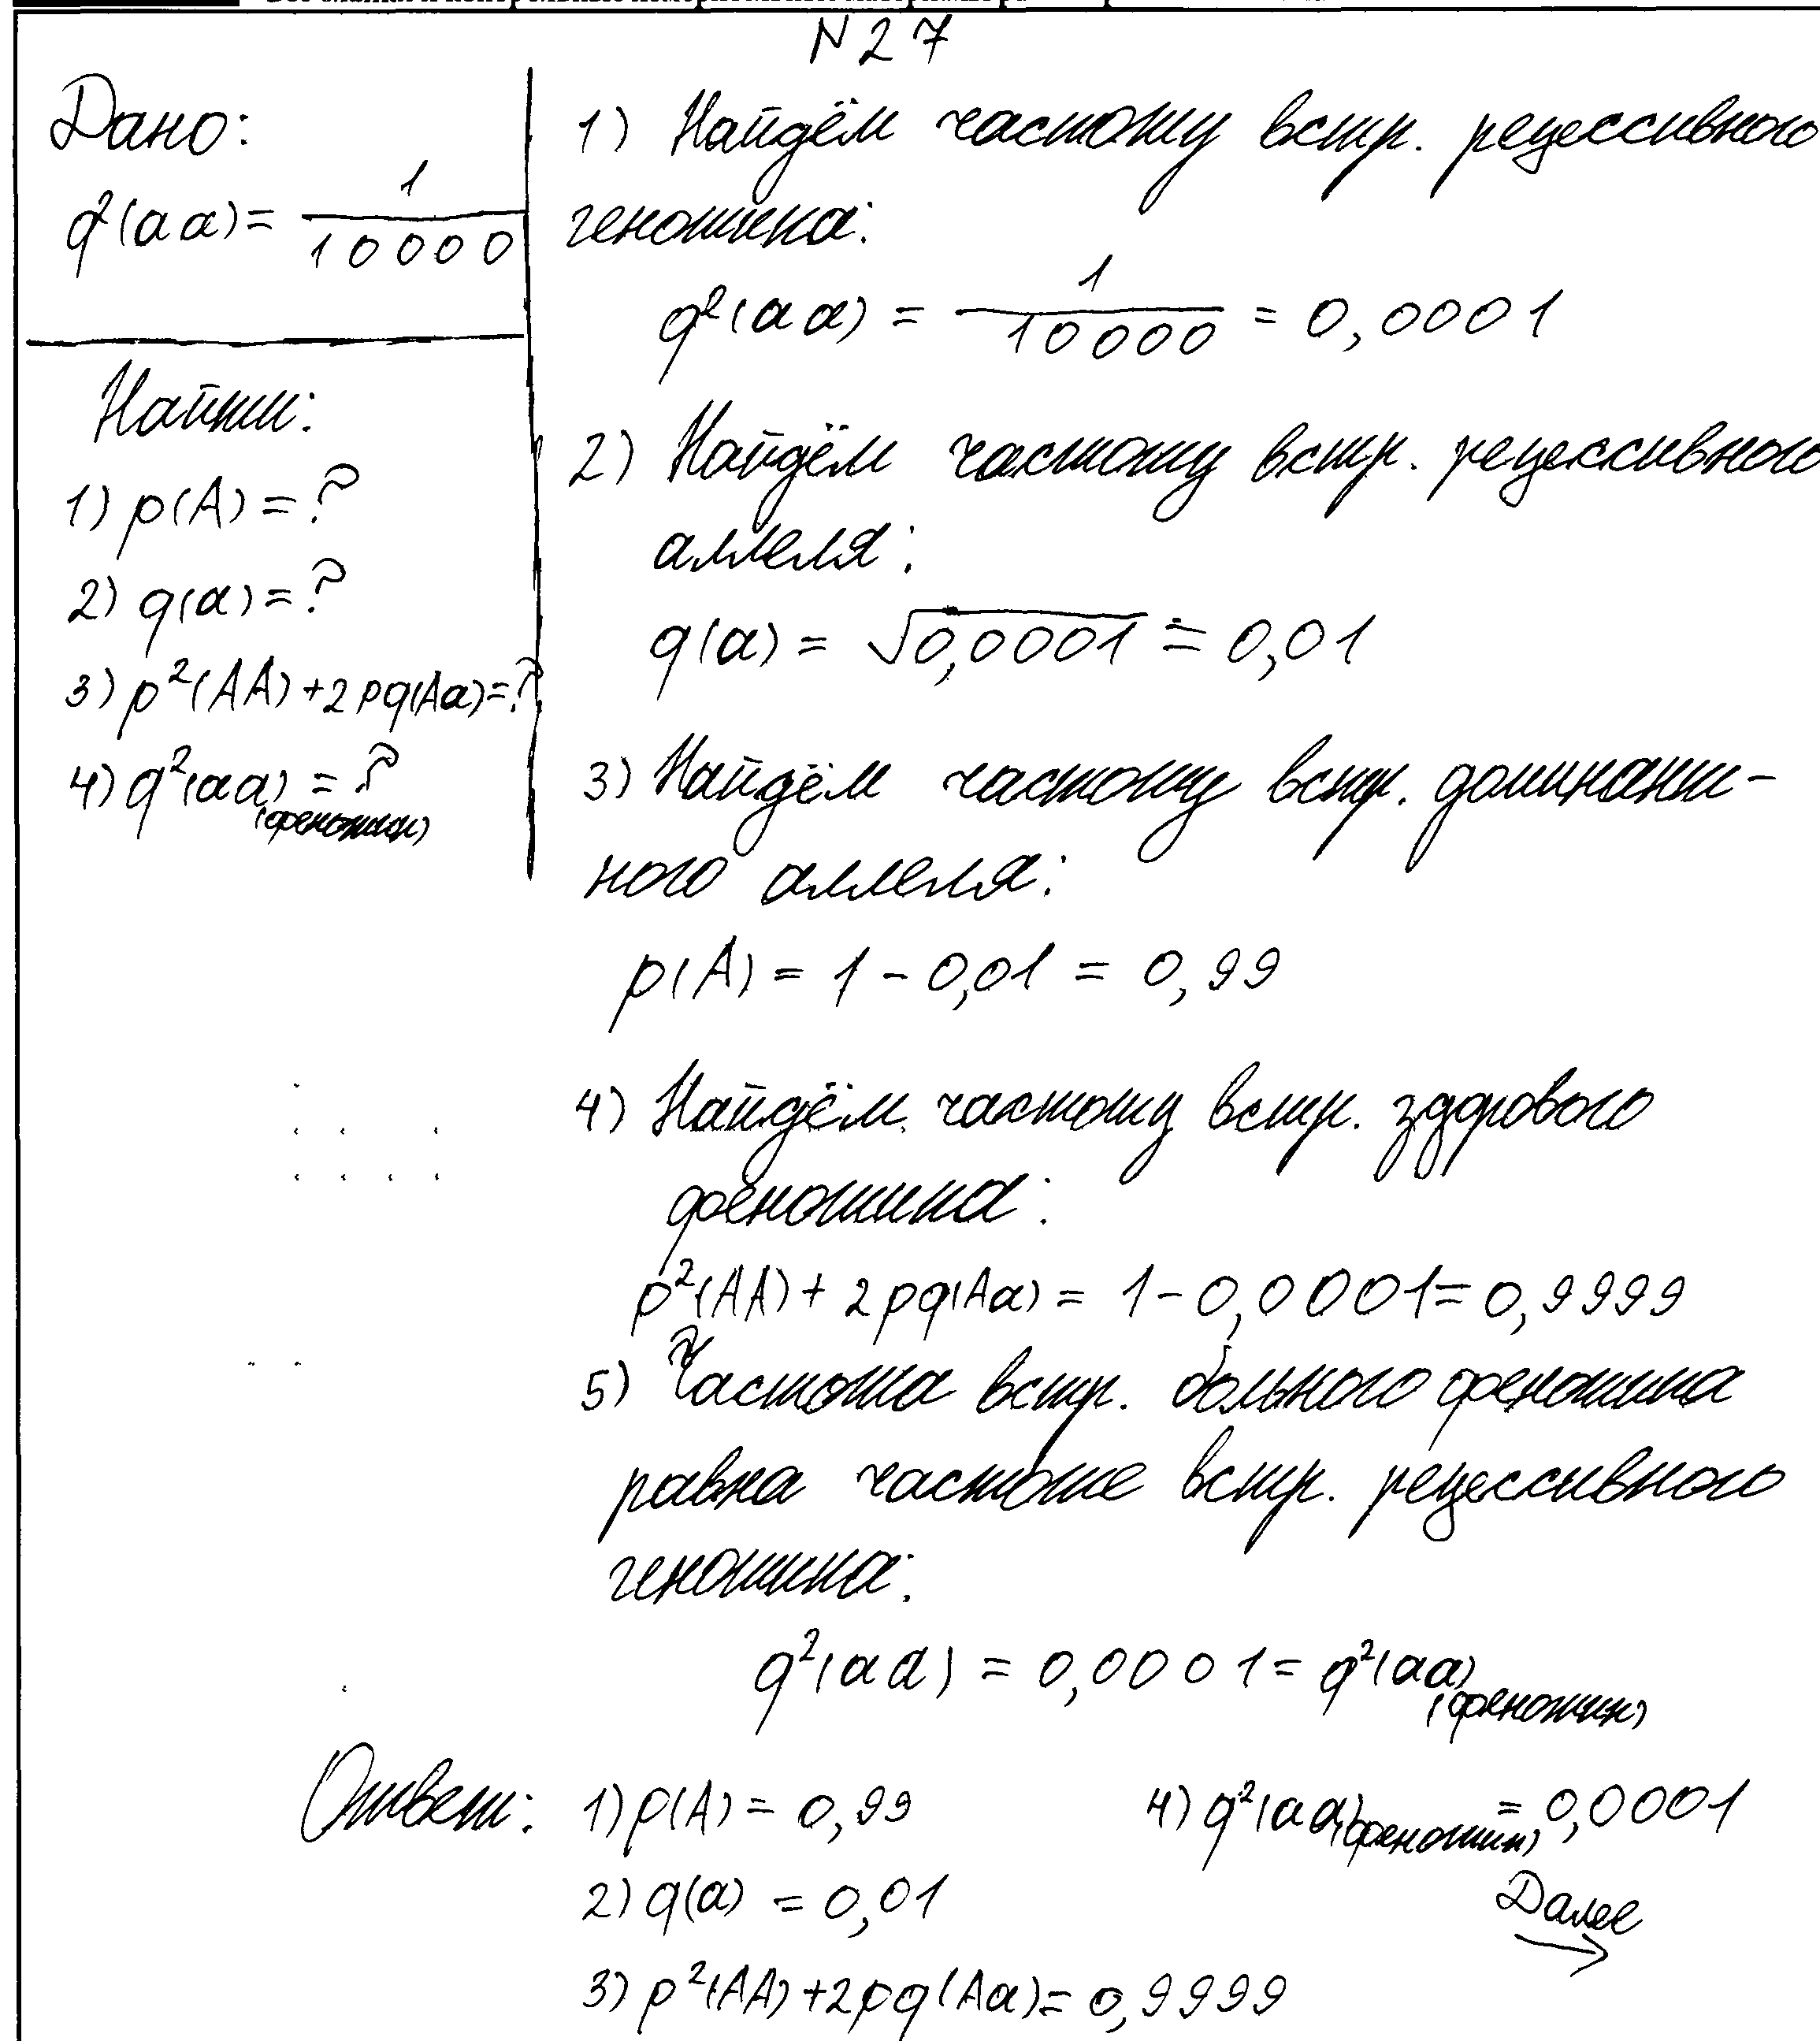 N27
Дано:
q²(aa) = 1/10000
Найти:
1) p(A) = ?
2) q(a) = ?
3) p²(AA) + 2pq(Aa) = ?
4) q²(aa) (фенотип) = ?
1) Найдём частоту встр. рецессивного
генотипа:
q²(aa) = 1/10000 = 0,0001
2) Найдём частоту встр. рецессивного
аллеля:
q(a) = √0,0001 = 0,01
3) Найдём частоту встр. доминант-
ного аллеля:
p(A) = 1 - 0,01 = 0,99
4) Найдём частоту встр. здорового
фенотипа:
p²(AA) + 2pq(Aa) = 1 - 0,0001 = 0,9999
5) Частота встр. больного фенотипа
равна частоте встр. рецессивного
генотипа:
q²(aa) = 0,0001 = q²(aa) (фенотип)
Ответ: 1) p(A) = 0,99
2) q(a) = 0,01
3) p²(AA) + 2pq(Aa) = 0,9999
4) q²(aa) (фенотип) = 0,0001
Далее →